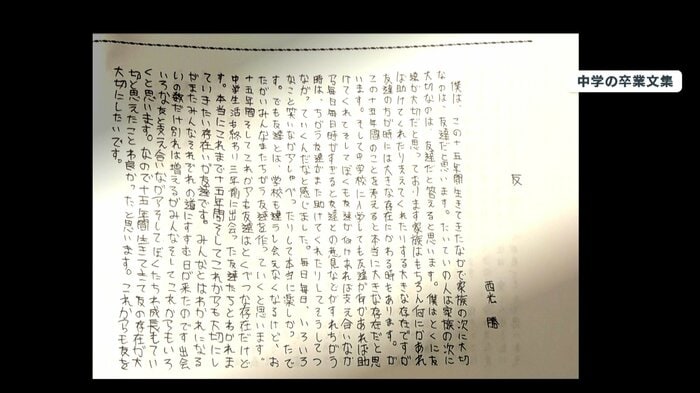 中学の卒業文集
友
西光 勝
僕は、この十五年間生きてきたなかで家族の次に大切
なのは、友達だと思います。たいていの人は家族の次に
大切なのは、友達だと答えると思います。僕はとくに友
達が大切だと思っております家族はもちろん何にかあれ
ば助けてくれたり支えてくれたりする大きな存在ですが
友達のちが時には大きな存在にかわる時もあります。が
この十五年間のことを考えると本当に大きな存在だと思
います。そして中学校に入学しても友達が何かあれば助
けてくれてそしてぼくも友達が何かあれば支え合いなが
ら毎日毎日時がすぎると友達との意見などがすれちがう
時は、ちがう友達がまた助けてくれたりしてそうしてつ
ながっていくんだなと感じました。毎日毎日、いろいろ
なこと笑いながらしゃべったりして本当に楽しかったで
す。でも友達とは、学校も違うし会えなくなるけど、お
たがいみんなまたちがう友達を作っていくと思います。
十五年間そしてこれからも友達はとくべつな存在だけど
中学生活も終わり三年間に出会った友達たちとわかれま
す。本当にこれまで十五年間そしてこれからも大切にし
ていきたい存在いが友達です。みんなとはわかれになる
ぜまたみんなそれぞれの道にすすむ日が来たのです出会
いの数だけ別れは増えるがみんなそしてこれからもいろ
いろな友と支え合いながらそしてぼくたちわ成長もてい
くと思います。なので十五年間生きてきて友の存在が大
切と思えたことわ良かったと思います。これからも友を
大切にしたいです。